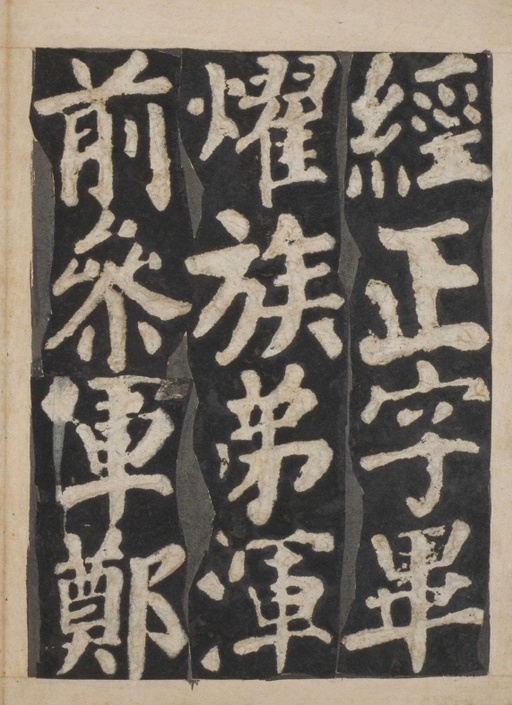 經正字畢
燿族弟渾
前叅軍鄭